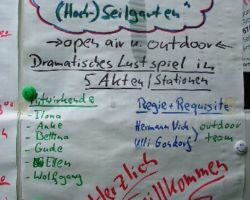 (Hoch-)Seilgarten"
→ open air u. outdoor ←
Dramatisches Lustspiel in
5 Akten/Stationen
Mitwirkende
- Ilona
- Anke
- Bettina
- Gude
- Ellen
- Wolfgang
Regie + Requisite
Hermann
Ulli
outdoor
team
Herzlich
Willkommen